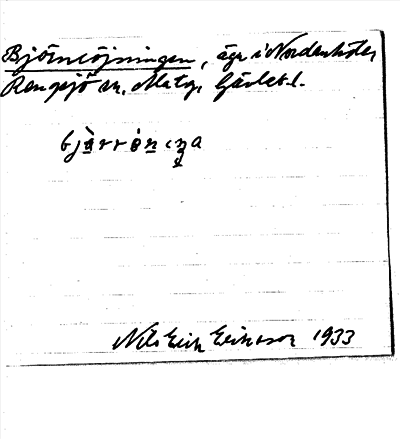 Björnröjningen, äga i Nordanhöle,
Rengsjö sn. Matg, Gävlebl.
Nils Erik Eriksson 1933